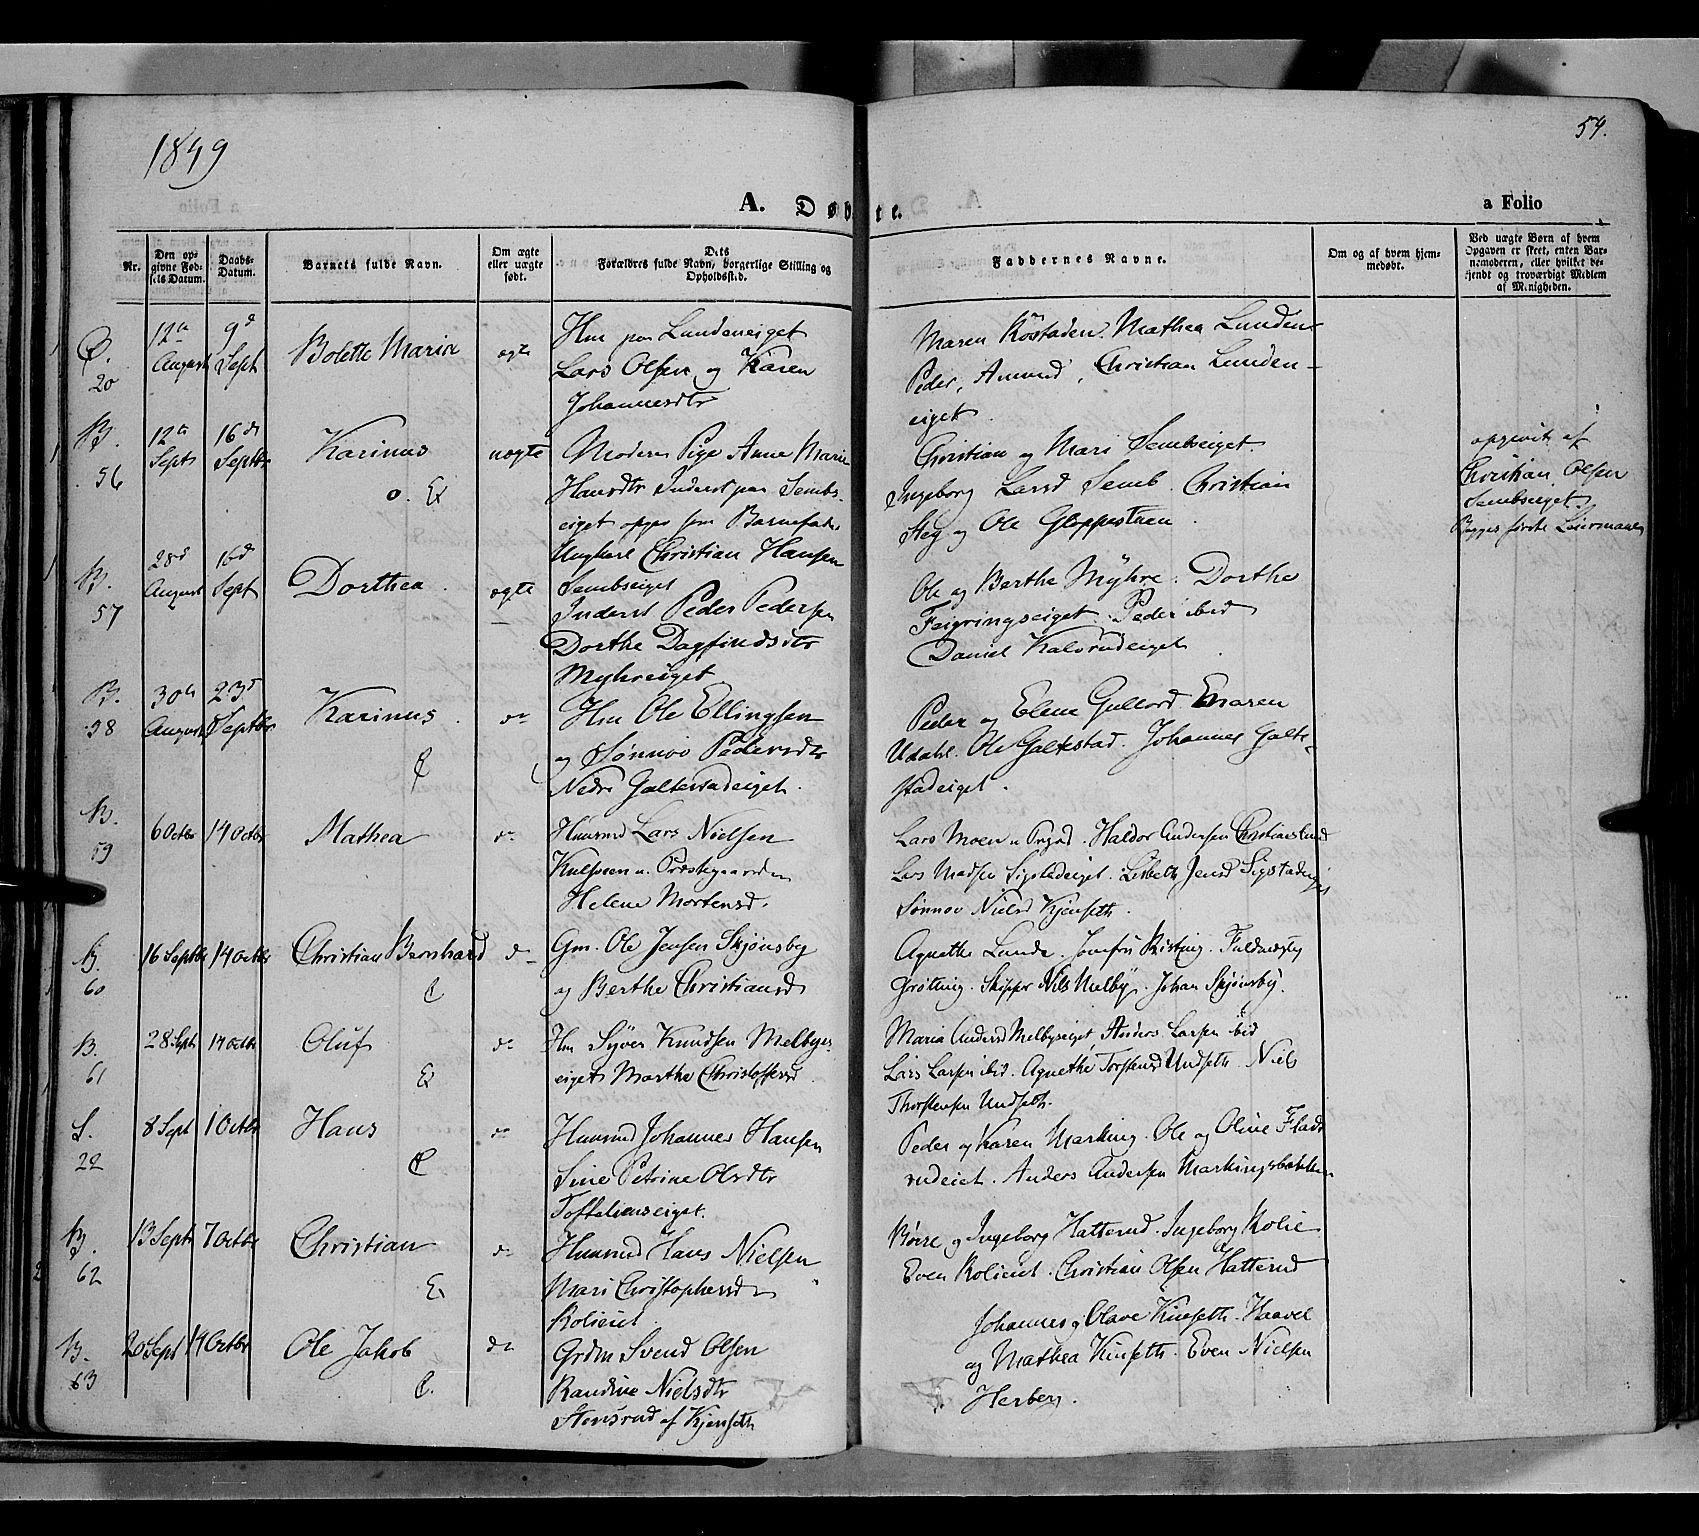 1849
54.
A. Døbte.
a Folio
Nr.
Den opgivne Fødsels Datum.
Daabs-Datum.
Barnets fulde Navn.
Om ægte eller uægte født.
Dets Forældres fulde Navn, borgerlige Stilling og Opholdssted.
Faddernes Navne.
Om og af hvem hjemmedøbt.
Ved uægte Børn af hvem Opgaven er skeet, enten Barnemoderen, eller hvilket bekjendt og troværdigt Medlem af Menigheden.
20
12te August
9d Sept
Bolette Maria
ægte
Hm paa Lundeneiget
Lars Olsen og Karen
Johannesdtr
Maren Røstaden. Mathea Lunden
Peder, Amund, Christian Lunden-
eiget.
B. 56
12te Sept
16de Septbr
Karinus
uægte
Moderen Pige Anne Marie
Hansdtr Inderst paa Sembs-
eiget opgav som Barnefader
Ungkarl Christian Hansen
Sembseiget
Christian og Mari Sembseiget.
Ingeborg Larsd Semb. Christian
Steg og Ole Gloppestuen.
opgivet af
Christian Olsen
Sembseiget.
Begges første Leiermaal
B. 57
28d August
16de Sept
Dorthea
ægte
Inderst Peder Pedersen
Dorthe Dagfindsdtr
Myhreiget
Ole og Berthe Myhre. Dorthe
Feigringseiget. Peder ibid
Daniel Kalsrudeiget.
B. 58
30te August
23d Septbr
Karinus
do
Hm Ole Ellingsen
og Sønnov Pedersdtr
Nedre Galtestadeiget.
Peder og Elene Gullord. Maren
Udahl. Ole Galtestad. Johannes Galte-
stadeiget.
B. 59
6 Octbr
14 Octbr
Mathea
do
Huusmd Lars Nielsen
u. Præstegaarden
Helene Mortensd.
Lars Moen u. Prgrd. Haldor Andersen Christianslund
Lars Madsen Sigstadeiget. Lisbeth Jensd Sigstadeiget
Sønnov Nielsd Kjenseth.
B. 60
16 Septbr
14 Octbr
Christian Bernhard
do
Gm. Ole Jensen Skjønsby
og Berthe Christiansd
Agnethe Lunde. Jomfru Kisting. Fuldmægtig
Grøtting. Skipper Nils Melby. Johan Skjønsby.
B. 61
28 Sept
14 Octbr
Oluf
do
Hm Syver Knudsen Melbyes-
eiget Marthe Christoffersd.
Maria Andersd Melbyseiget, Anders Larsen ibid
Lars Larsen ibid. Agnethe Torstensd Undseth. Niels
Thorstensen Undseth.
L. 22
8 Sept
1 Octbr
Hans
do
Huusmd Johannes Hansen
Sine Petrine Olsdtr
Toftelienseiget.
Peder og Karen Marking. Ole og Oline Flads
rudeiet. Anders Andersen Markingsbakken
B. 62
13 Sept
7 Octbr
Christian
do
Huusmd Hans Nielsen
Mari Christophersd
Rolieiet.
Børre og Ingeborg Hatterud. Ingeborg Rolie
Even Rolieiet. Christian Olsen Hatterud
B. 63
20 Sept
14 Octbr
Ole Jakob
do
Grdm Svend Olsen
Randine Nielsdtr
Stensrud af Kjenseth
Johannes og Olave Kinseth. Haavel
og Mathea Kinseth. Even Nielsen
Herberg.